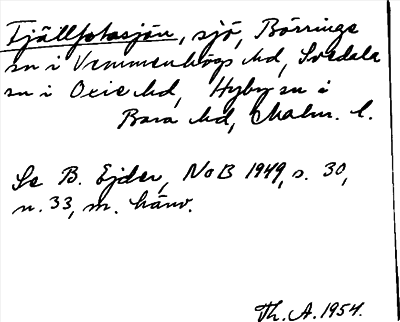 Fjällfotasjön, sjö, Börringe
sn i Vemmenhögs hd, Svedala
sn i Oxie hd, Hyby sn i
Bara hd, Malm. l.
Se B. Ejder, NoB 1949, s. 30,
n. 33, m. hänv.
Th. A. 1954.